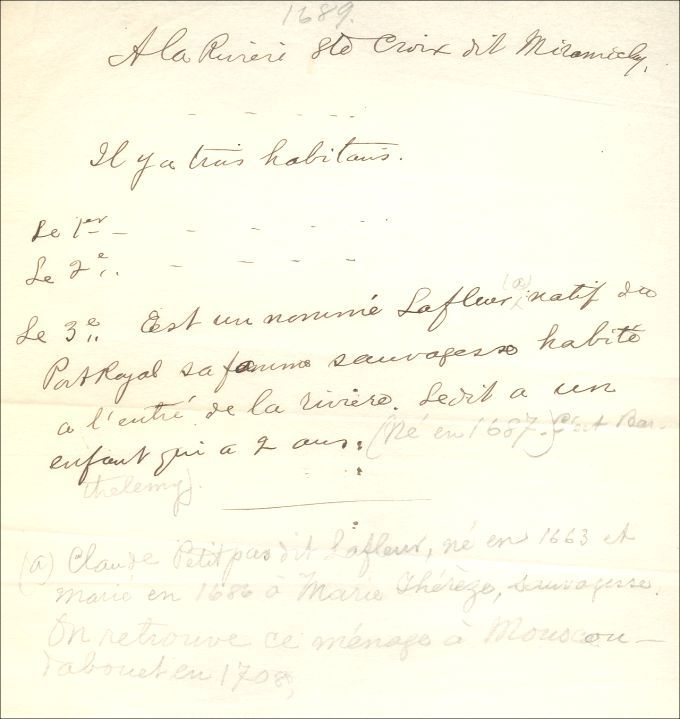 1689.
A la Rivière Ste Croix dit Miramichy.
- - - - -
Il y a trois habitans.
Le 1er - - - - -
Le 2e„ - - - -
Le 3e„ Est un nommé Lafleur (a) natif du
Port Royal sa famme sauvagesse habité
a l'entré de la rivière. Ledit a un
enfant qui a 2 ans. (Né en 1687. C'est Bar-
thelemy).
(a) Claude Petitpas dit Lafleur, né en 1663 et
marié en 1686 à Marie Thérèze, sauvagesse.
On retrouve ce ménage à Mouscou-
dabouet en 1708,